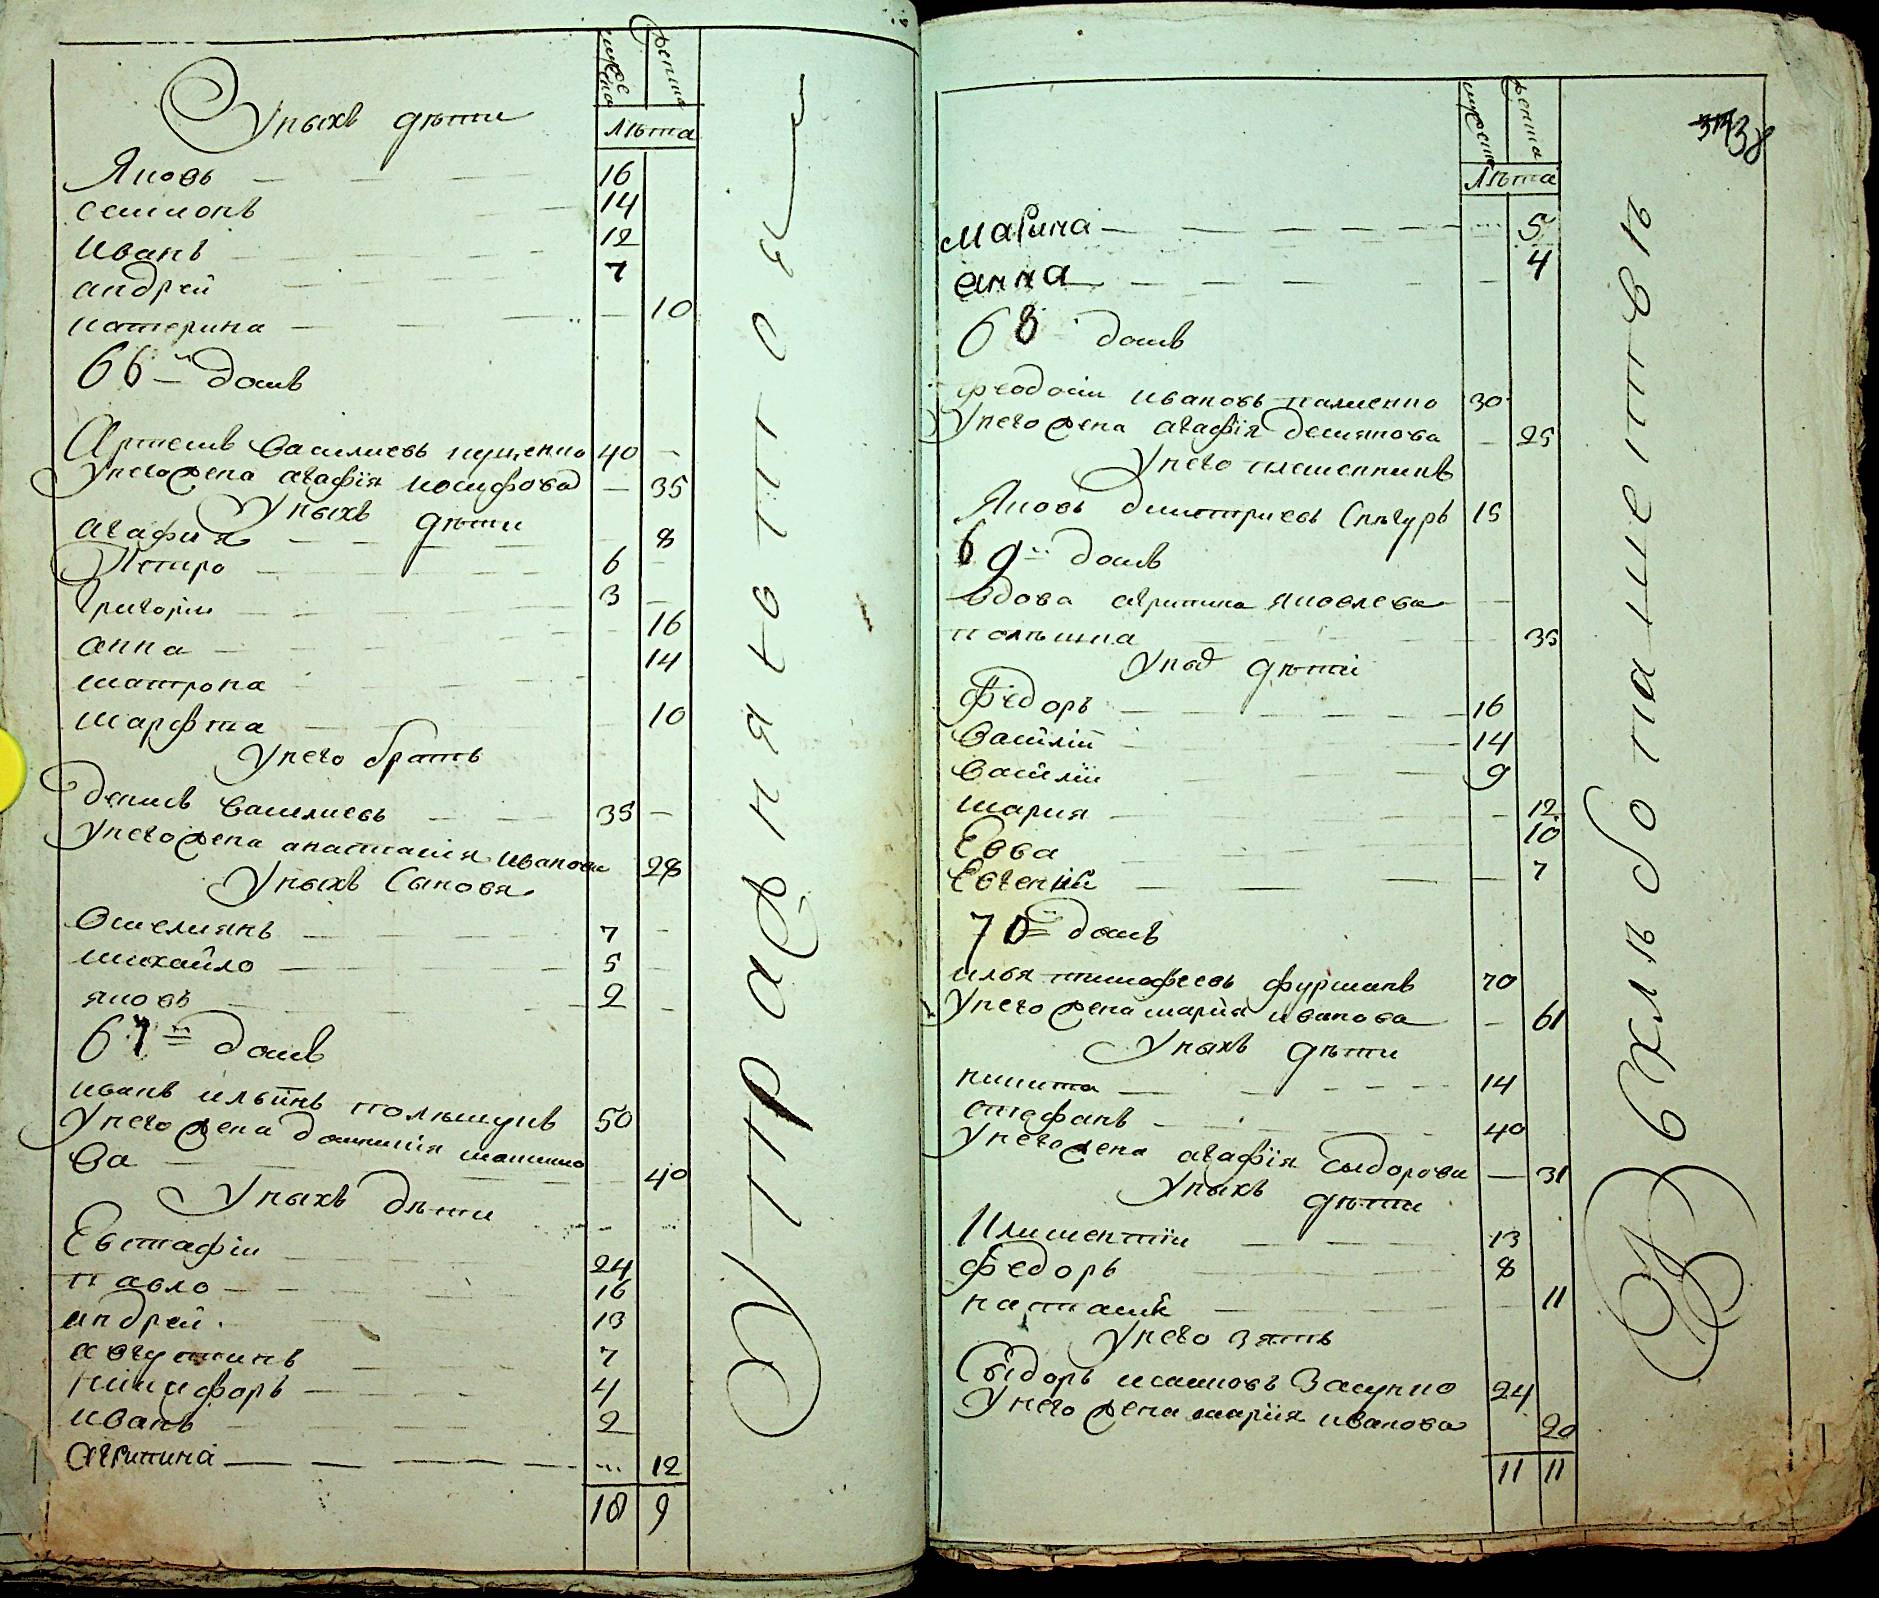 мужеска
женска
Лѣта
У ныхъ дѣти
Яковъ 16
семионъ 14
Иванъ 12
андрей 7
катерина 10
66 й домъ
Артемъ василиевъ куценко 40
У него жена агафїя иосифова 35
У ныхъ дѣти
агафия 8
Петро 6
Григории 3
анна 16
матрона 14
марфта 10
У него братъ
денисъ василиевъ 35
У него жена анастасия иванова 28
У ныхъ Сыновя
Омелиянъ 7
михайло 5
яковъ 2
67 й домъ
иванъ ильїнъ полтшукъ 50
У него жена домникїя максимо
ва 40
У ныхъ дѣти
Евстафiи 24
павло 16
андрей 13
августинъ 7
никифоръ 4
иванъ 2
агрипина 12
18 9
Управнятотся
мужеска
женска
Лѣта
38
марина 5
анна 4
68 домъ
феодосiи ивановъ паленко 30
У него жена агафїя демянова 25
У него племенникъ
Яковъ димитриевъ Снѣгуръ 15
69 й домъ
вдова агрипина яковлева
полтшка 35
У ныд дѣти
Федоръ 16
Василїй 14
василїи 9
мария 12
Евва 10
Евгенїи 7
70 й домъ
илья тимофеевъ фурманъ 70
У него жена марїя иванова 61
У ныхъ дѣти
никита 14
стефанъ 40
У него жена агафїя сыдорова 31
У ныхъ дѣти
Климентїи 13
федоръ 8
настасия 11
У него зятъ
Сыдоръ исаиовъ Засунко 24
У него жена марїя иванова 20
11 11
В хлѣбопашествѣ